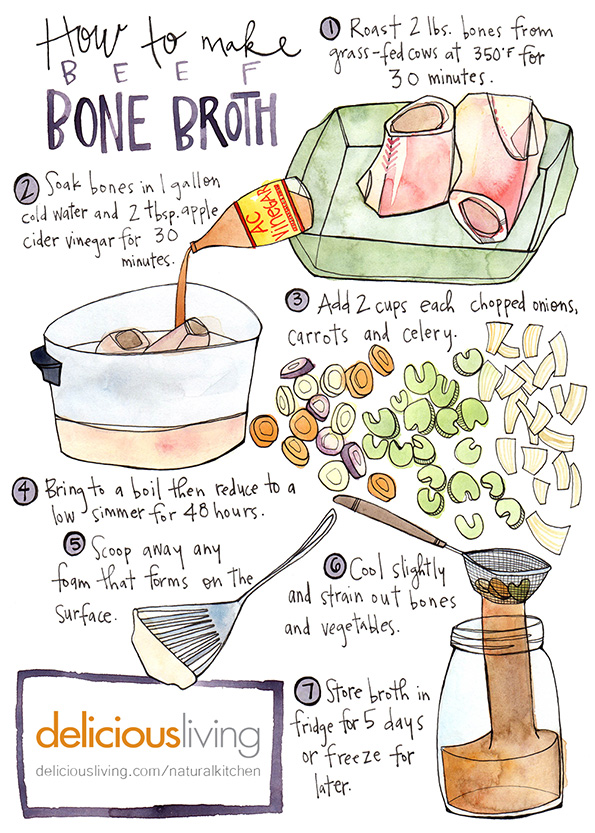 How to make
BEEF
BONE BROTH
1 Roast 2 lbs. bones from
grass-fed cows at 350°F for
30 minutes.
2 Soak bones in 1 gallon
cold water and 2 tbsp. apple
cider vinegar for 30
minutes.
AC
Vinegar
3 Add 2 cups each chopped onions,
carrots and celery.
4 Bring to a boil then reduce to a
low simmer for 48 hours.
5 Scoop away any
foam that forms on the
surface.
6 Cool slightly
and strain out bones
and vegetables.
7 Store broth in
fridge for 5 days
or freeze for
later.
deliciousliving
deliciousliving.com/naturalkitchen